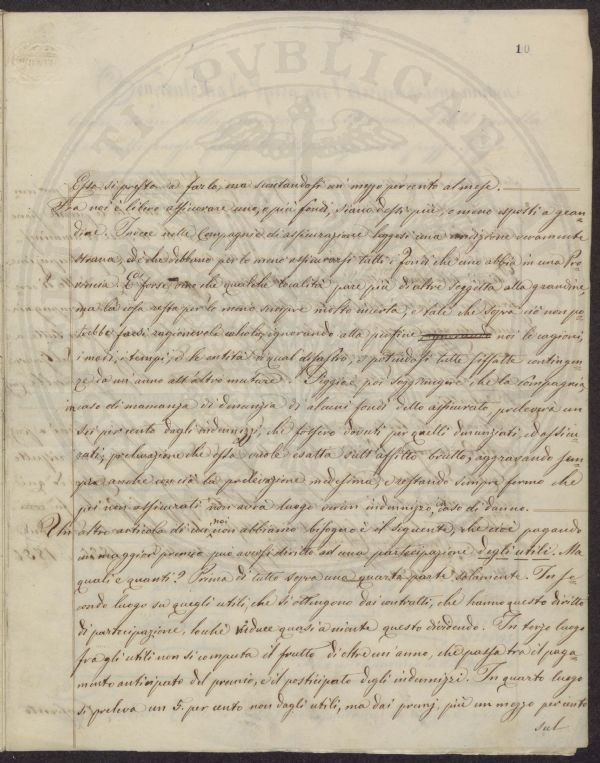 10
TI PVBLICAE
Essa si presta a farlo, ma scontandosi un mezzo per cento al mese.
Fra noi è libero assicurare uno, o più fondi, siano dessi più, o meno esposti a gran=
dine. Invece nelle Compagnie di assicurazione leggesi una condizione veramente
strana, ed è che debbano per lo meno assicurarsi tutti i fondi che uno abbia in una Pro=
vincia. E' forse vero che qualche località pare più di altre soggetta alla grandine,
ma la cosa resta per lo meno sempre molto incerta, e tale che sopra ciò non po=
trebbe farsi ragionevole calcolo, ignorando alla perfine noi le cagioni,
i modi, i tempi, e le entità di qual disastro, e potendosi tutte siffatte contingen=
ze da un anno all'altro mutare. Peggio è poi soggiungere che la compagnia,
in caso di mancanza di denunzia di alcuni fondi dello assicurato, preleverà un
sei per cento dagli indennizzi, che fossero dovuti per quelli denunziati, ed assicu=
rati; prelevazione che essa vuole esatta sull'affitto brutto, aggravando sem=
pre anche con ciò la prelevazione medesima, e restando sempre fermo che
pei non assicurati non avrà luogo verun indennizzo, in caso di danno.
Un altro articolo di cui noi non abbiamo bisogno è il seguente, che cioè pagando
un maggior premio può aversi diritto ad una partecipazione degli utili. Ma
quali e quanti? Prima di tutto sopra una quarta parte solamente. In se=
condo luogo su quegli utili, che si ottengono dai contratti, che hanno questo diritto
di partecipazione, locchè riduce quasi a niente questo dividendo. In terzo luogo
fra gli utili non si computa il frutto di oltre un anno, che passa tra il paga=
mento anticipato del premio, e il posticipato degli indennizzi. In quarto luogo
si preleva un 5. per cento non dagli utili, ma dai premj, più un mezzo per cento
sul